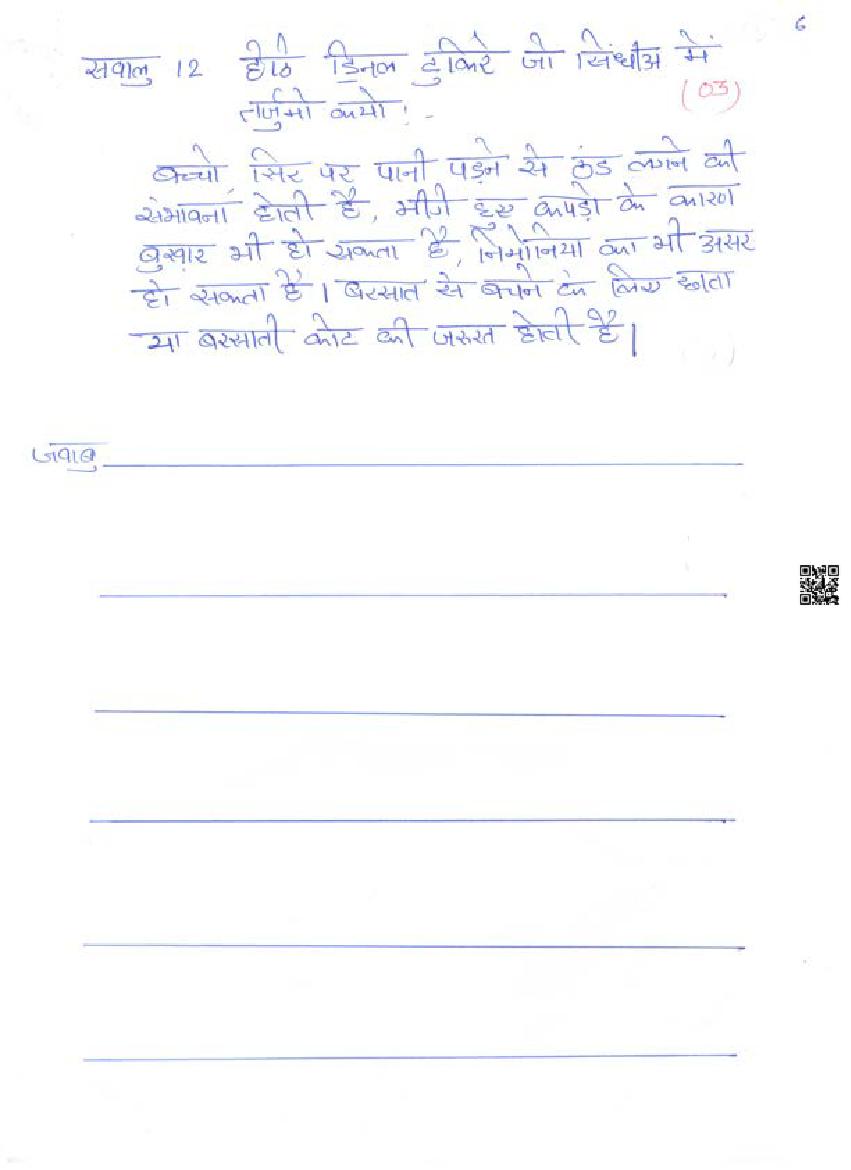 6
सवालु 12 हेठि डि॒नल टुकिरे जो सिंधीअ में
(03)
तर्जुमो कयो !-
बच्चो, सिर पर पानी पड़ने से ठंड लगने की
संभावना होती है, भीगे हुए कपड़ो के कारण
बुखार भी हो सकता है, निमोनिया का भी असर
हो सकता है। बरसात से बचने के लिए छाता
या बरसाती कोट की जरुरत होती है।
जवाबु